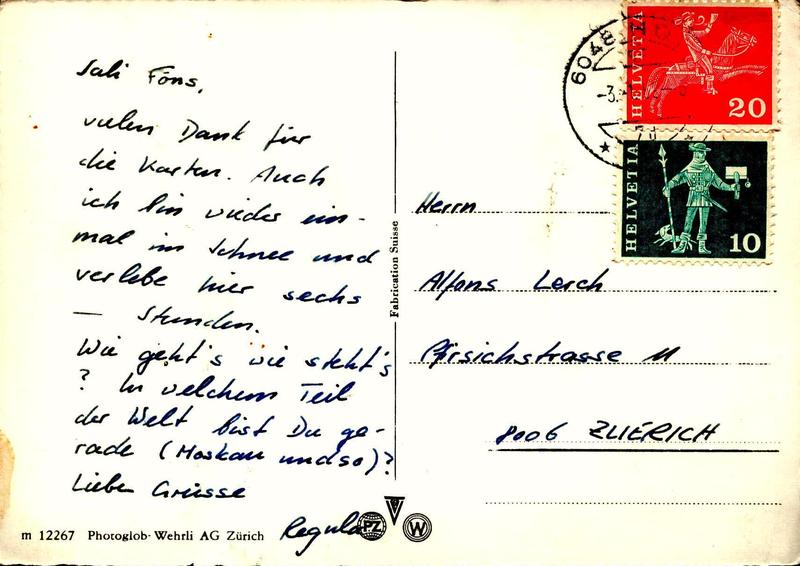 Sali Föns,
vielen Dank für
die Karten. Auch
ich bin wieder ein-
mal im Schnee und
verlebe hier sechs
— Stunden.
Wie geht's wie steht's
? In welchem Teil
der Welt bist Du ge-
rade (Moskau und so)?
Liebe Grüsse
Regula
m 12267 Photoglob-Wehrli AG Zürich
PZ
W
Fabrication Suisse
6048
-3.
HELVETIA
20
HELVETIA
10
Herrn
Alfons Lerch
Pfirsichstrasse 11
8006 ZUERICH